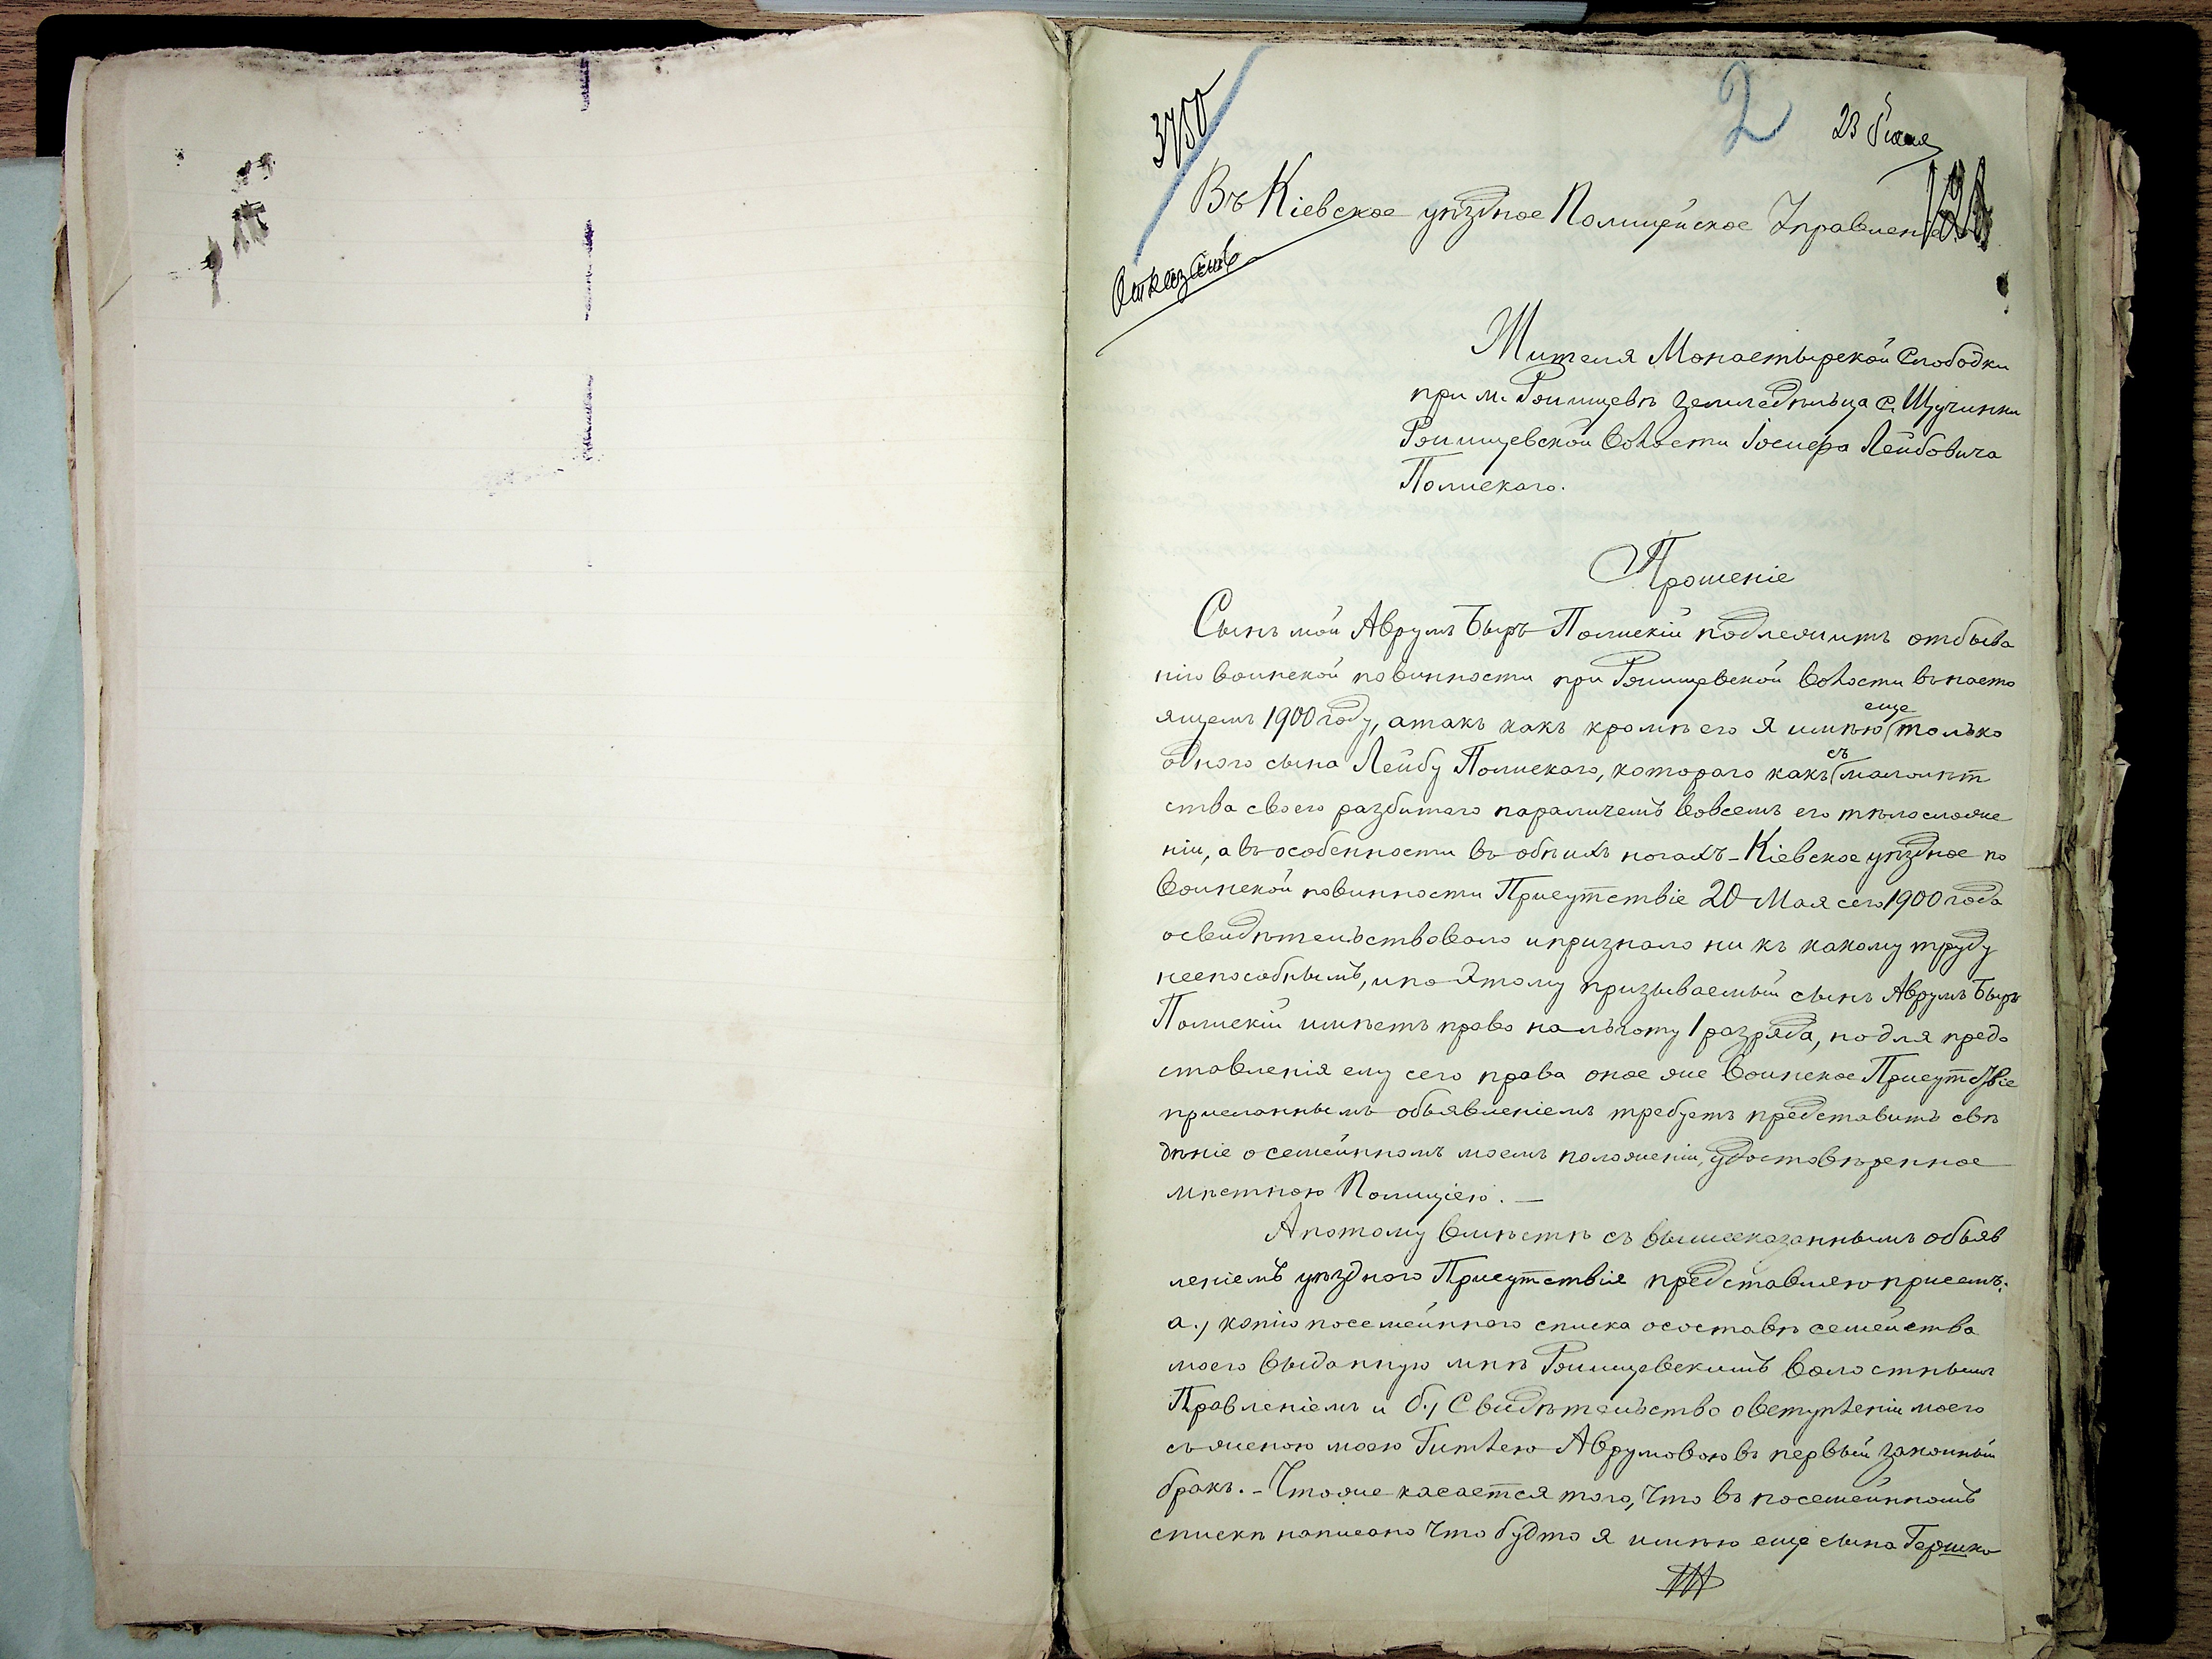 3750
2
23 Іюня
Въ Кіевское уѣздное Полицейское Управленіе
Отказать
Жителя Монастырской Слободки
при м. Ржищевѣ земледѣльца с. Щучинки
Ржищевской волости Іосифа Лейбовича
Полискаго.
Прошеніе
Сынъ мой Аврумъ Беръ Полискій подлежитъ отбыва
нію воинской повинности при Ржищевской волости въ насто
ящемъ 1900 году, а такъ какъ кромѣ его я имѣю еще только
одного сына Лейбу Полискаго, котораго какъ съ малолѣт
ства своего разбитаго параличемъ во всемъ его тѣлосложе
ніи, а въ особенности въ обѣихъ ногахъ – Кіевское уѣздное по
воинской повинности Присутствіе 20 Мая сего 1900 года
освидѣтельствовало и признало ни къ какому труду
неспособнымъ, и по этому призываемый сынъ Аврумъ Беръ
Полискій имѣетъ право на льготу 1 разряда, но для предо
ставленія ему сего права оное же Воинское Присутствіе
присланнымъ объявленіемъ требуетъ представить свѣ
дѣніе о семейномъ моемъ положеніи, удостовѣренное
мѣстною Полиціею. —
А потому вмѣстѣ съ вышесказаннымъ объяв
леніемъ уѣзднаго Присутствія представляю при семъ:
а., копію посемейнаго списка о составѣ семейства
моего выданную мнѣ Ржищевскимъ Волостнымъ
Правленіемъ и б., Свидѣтельство о вступленіи моего
съ женою моею Гитлею Аврумовою въ первый законный
бракъ. – Что же касается того, что въ посемейномъ
спискѣ написано что будто я имѣю еще сына Гершко